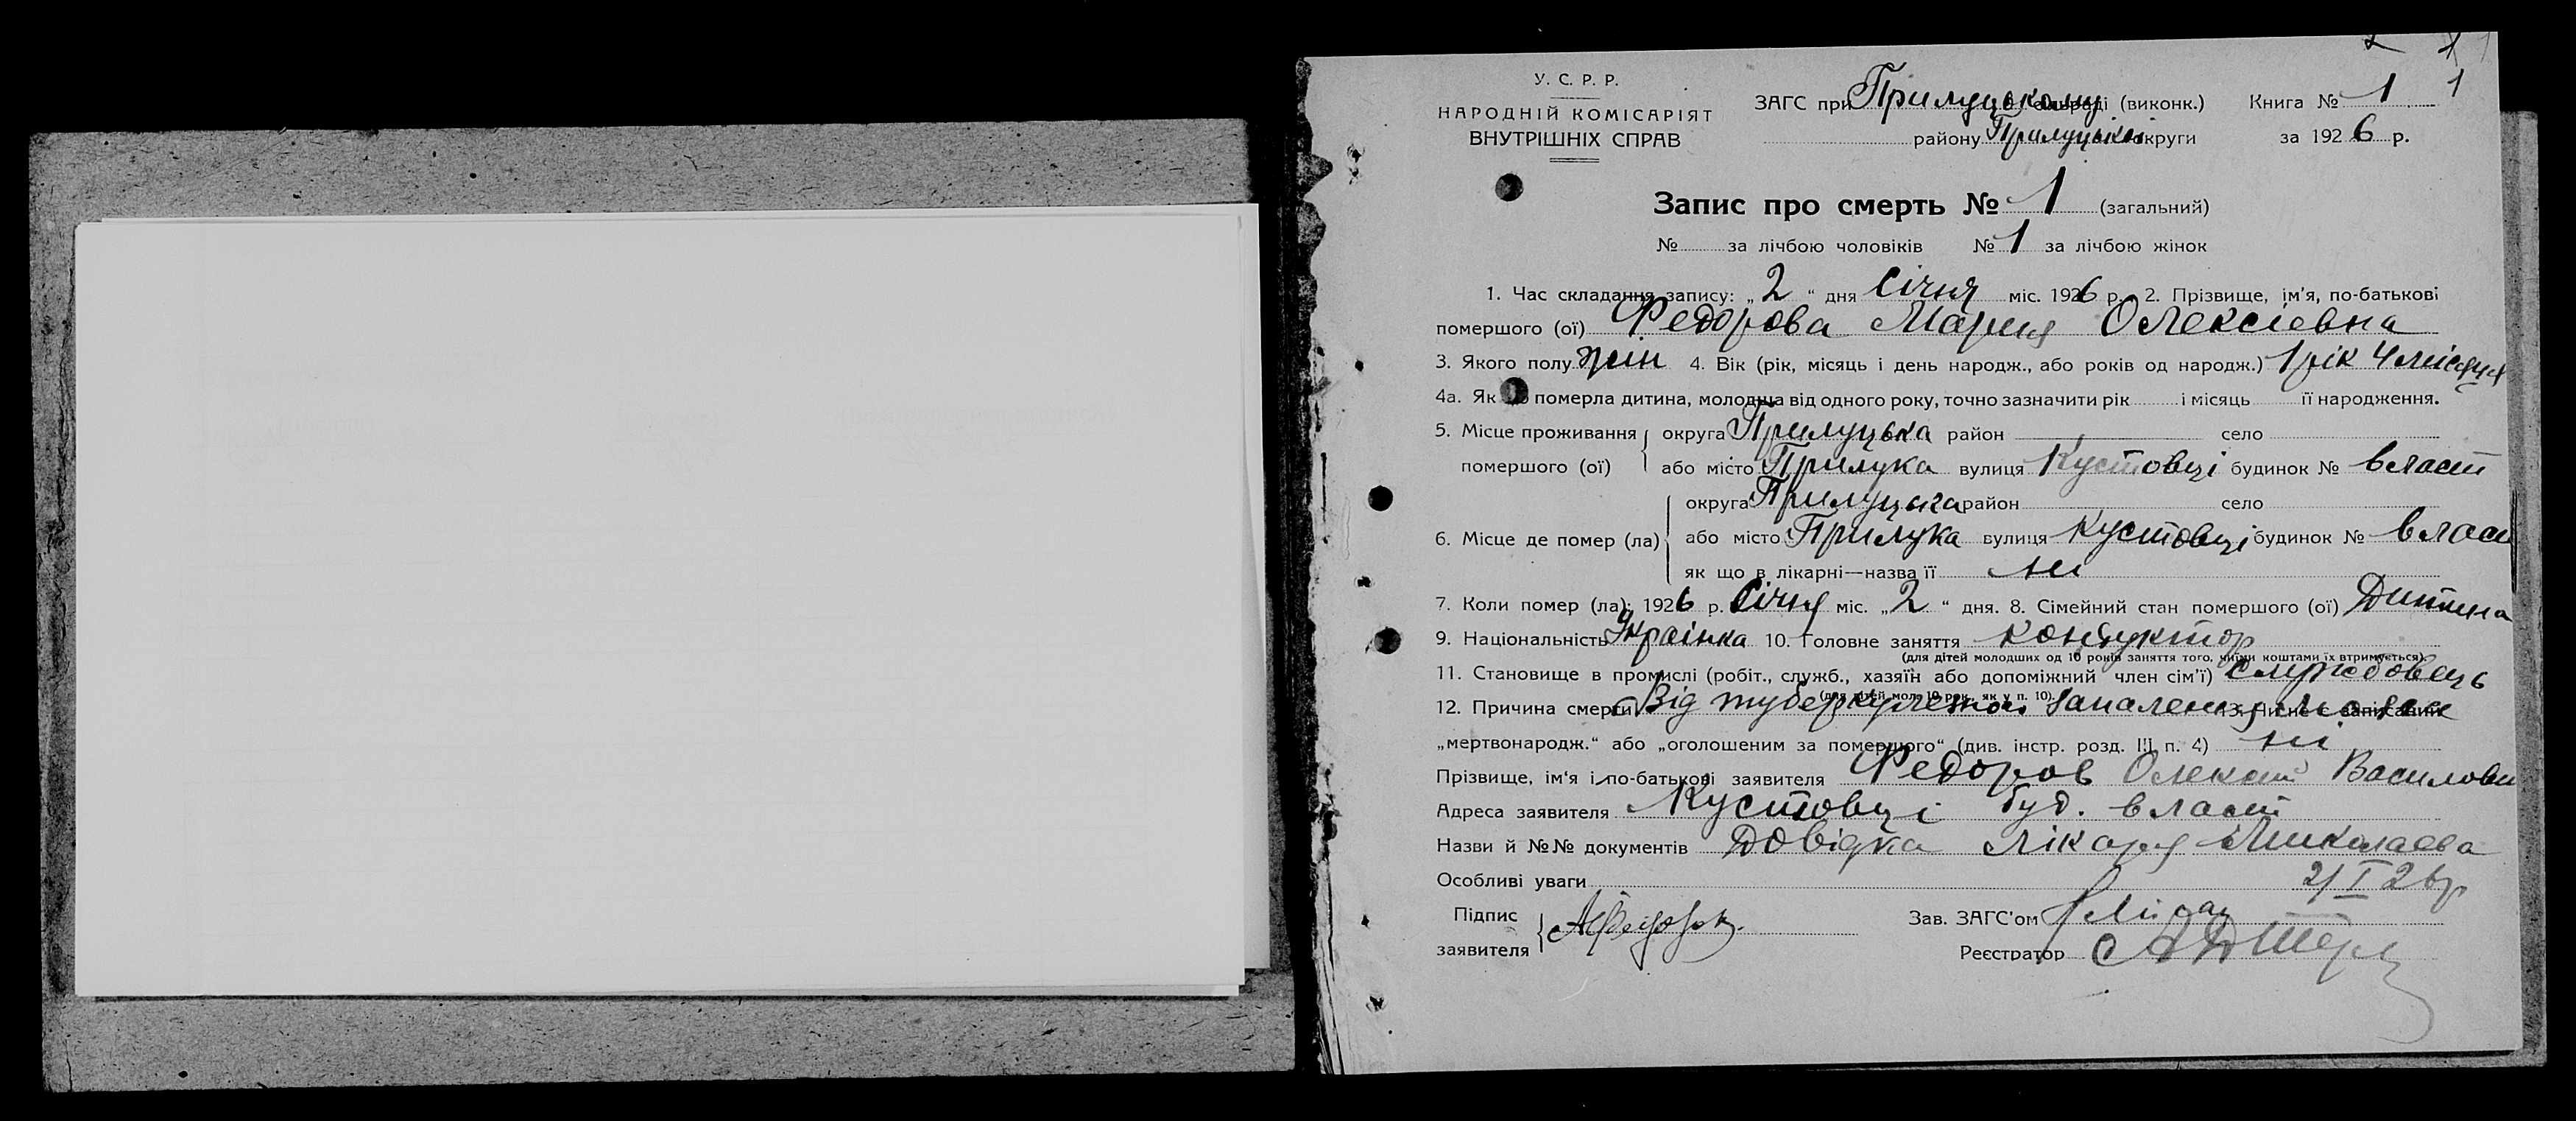 1
У. С. Р. Р.
НАРОДНІЙ КОМІСАРІЯТ
ВНУТРІШНІХ СПРАВ
ЗАГС при Прилуцькому (виконк.) Книга № 1
району Прилуцької округи за 1926 р.
Запис про смерть № 1 (загальний)
№ за лічбою чоловіків № 1 за лічбою жінок
1. Час складання запису: „2“ дня Січня міс. 1926 р. 2. Прізвище, ім’я, по-батькові
помершого (ої) Федорова Мария Олексіевна
3. Якого полу жін 4. Вік (рік, місяць і день народж., або років од народж.) 1 рік 4 місяця
4а. Як що померла дитина, молодша від одного року, точно зазначити рік і місяць її народження.
5. Місце проживання округа Прилуцька район село
помершого (ої) або місто Прилука вулиця Кустовці будинок № власт
округа Прилуцька район село
6. Місце де помер (ла) або місто Прилука вулиця Кустовці будинок № власт
як що в лікарні—назва її ні
7. Коли помер (ла): 1926 р. Січня міс. „2“ дня. 8. Сімейний стан помершого (ої) Дитина
9. Національність Украінка 10. Головне заняття кондуктор
(для дітей молодших од 10 років заняття того, чиїми коштами їх втримується).
11. Становище в промислі (робіт., служб., хазяїн або допоміжний член сім’ї) службовець
(для дітей мол. 10 рок. як у п. 10).
12. Причина смерти Від туберкулезной запаления 13. Чи не є записаний
„мертвонародж.“ або „оголошеним за помершого“ (див. інстр. розд. III п. 4) ні
Прізвище, ім‘я і по-батькові заявителя Федоров Олексій Василови
Адреса заявителя Кустовці буд. власт
Назви й №№ документів Довідка лікаря Миколаева
Особливі уваги 2/I 26р
Підпис
заявителя
Зав. ЗАГС’ом
Реєстратор